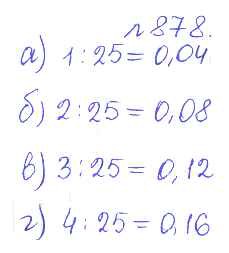 №878.
а) 1 : 25 = 0,04
б) 2 : 25 = 0,08
в) 3 : 25 = 0,12
г) 4 : 25 = 0,16